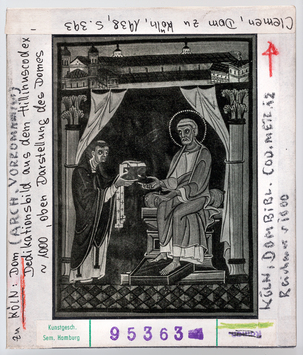 Clemen, Dom zu Köln, 1938, S. 393
zu KÖLN: Dom (ARCH. VORROMAN.)
Dedikationsbild aus dem Hillinuscodex
~ 1000, oben Darstellung des Domes
KÖLN, DOMBIBL. COD. METR. 12
Reichenau ~ 1000
Kunstgesch.
Sem. Hamburg
95363